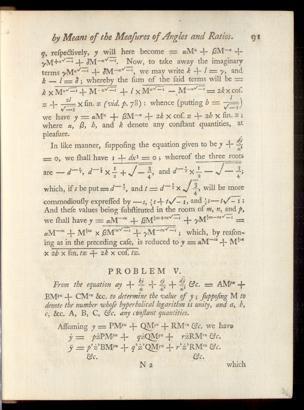 by Means of the Measures of Angles and Ratios. 91
q, respectively, y will here become = aMⁿ + βM⁻ⁿ +
Now, to take away the imaginary
terms we may write k + l = γ, and
k − l = δ; whereby the sum of the said terms will be
= 2k × cof.
× fin. z (vid. p. 78): whence (putting b =
we have y = aMⁿ + βM⁻ⁿ + 2k × cof. z + 2b × fin. z;
where a, β, b, and k denote any conſtant quantities, at
pleaſure.
In like manner, ſuppoſing the equation given to be y +
= 0, we ſhall have 1 + dx³ = 0; whereof the three roots
are
which, if s be put = and t = will be more
commodiouſly expreſſed by −s, ½s + t√−1, and ½s − t√−1:
And theſe values being ſubſtituted in the room of m, n, and p,
we ſhall have y =
which, by reaſon-
ing as in the preceding caſe, is reduced to y =
PROBLEM V.
From the equation ay + &c. = AMᵖᶻ +
BMᵠᶻ + CMʳᶻ &c. to determine the value of y; ſuppoſing M to
denote the number whoſe hyperbolical logarithm is unity, and a, b,
c, &c. A, B, C, &c. any conſtant quantities.
Aſſuming y = PMᵖᶻ + QMᵠᶻ + RMʳᶻ &c. we have
ẏ = pżPMᵖᶻ + qżQMᵠᶻ + rżRMʳᶻ &c.
ÿ = p²ż²PMᵖᶻ + q²ż²QMᵠᶻ + r²ż²RMʳᶻ &c.
&c. &c.
N 2 which